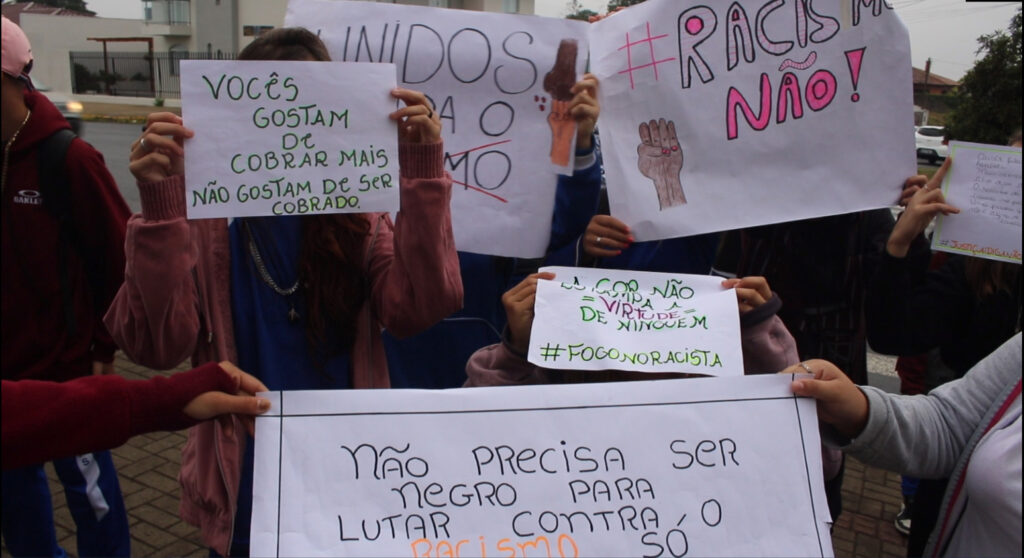 VOCÊS
GOSTAM
DE
COBRAR MAIS
NÃO GOSTAM DE SER
COBRADO.
UNIDOS
A O
MO
#RACISMO
NÃO!
OAKLEY
A COR NÃO
VIRTUDE
DE NINGUÉM
#FOGONORACISTA
#JUSTIÇA
NÃO PRECISA SER
NEGRO PARA
LUTAR CONTRA O
RACISMO SÓ